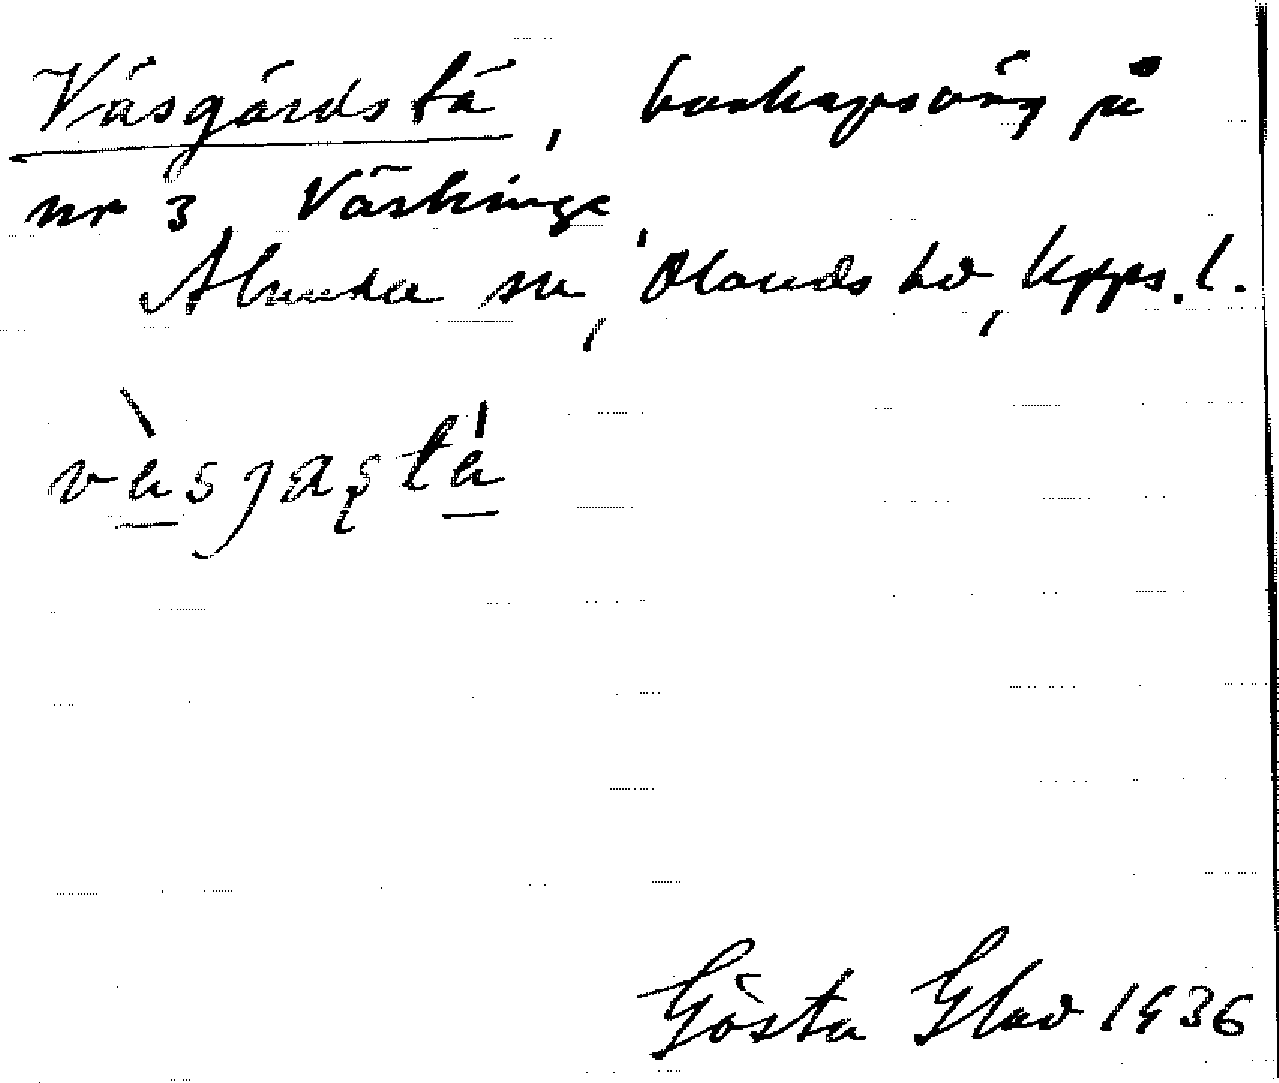 Väsgärdstä, boskapsväg på
nr 3 Väskinge
Alunda sn, Olands hd, Upps. l.
vàsjaṣtá
Gösta Glad 1936